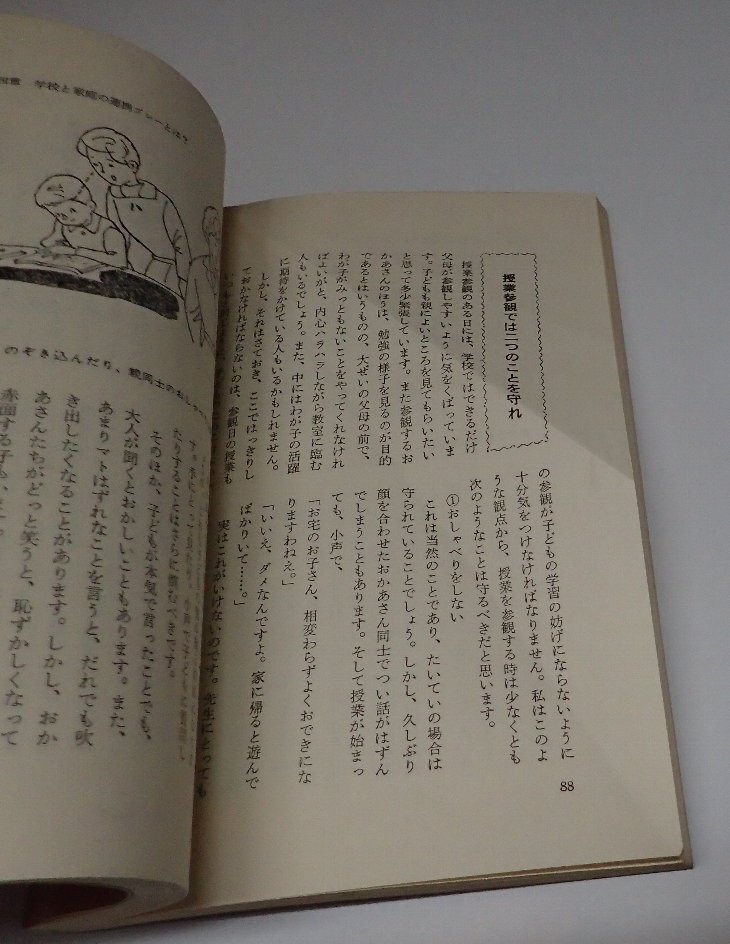 授業参観では二つのことを守れ
授業参観のある日には、学校ではできるだけ
父母が参観しやすいように気をくばっていま
す。子どもも親によいところを見てもらいたい
と思って多少緊張しています。また参観するお
かあさんのほうは、勉強の様子を見るのが目的
であるとはいうものの、大ぜいの父母の前で、
わが子がみっともないことをやってくれなけれ
ばよいがと、内心ハラハラしながら教室に臨む
人もいるでしょう。また、中にはわが子の活躍
に期待をかけている人もいるかもしれません。
しかし、それはさておき、ここではっきりし
ておかなければならないのは、参観日の授業も
の参観が子どもの学習の妨げにならないように
十分気をつけなければなりません。私はこのよ
うな観点から、授業を参観する時は少なくとも
次のようなことは守るべきだと思います。
①おしゃべりをしない
これは当然のことであり、たいていの場合は
守られていることでしょう。しかし、久しぶり
顔を合わせたおかあさん同士でつい話がはずん
でしまうこともあります。そして授業が始まっ
ても、小声で、
「お宅のお子さん、相変わらずよくおできにな
りますわねえ。」
「いいえ、ダメなんですよ。家に帰ると遊んで
ばかりいて……。」
実はこれがいけないのです。先生にとっても
88
学校と家庭の連携プレーとは？
のぞき込んだり、親同士のおしゃべ
たりすることはさらに慎むべきです。
そのほか、子どもが本気で言ったことでも、
大人が聞くとおかしいこともあります。また、
あまりマトはずれなことを言うと、だれでも吹
き出したくなることがあります。しかし、おか
あさんたちがどっと笑うと、恥ずかしくなって
赤面する子も